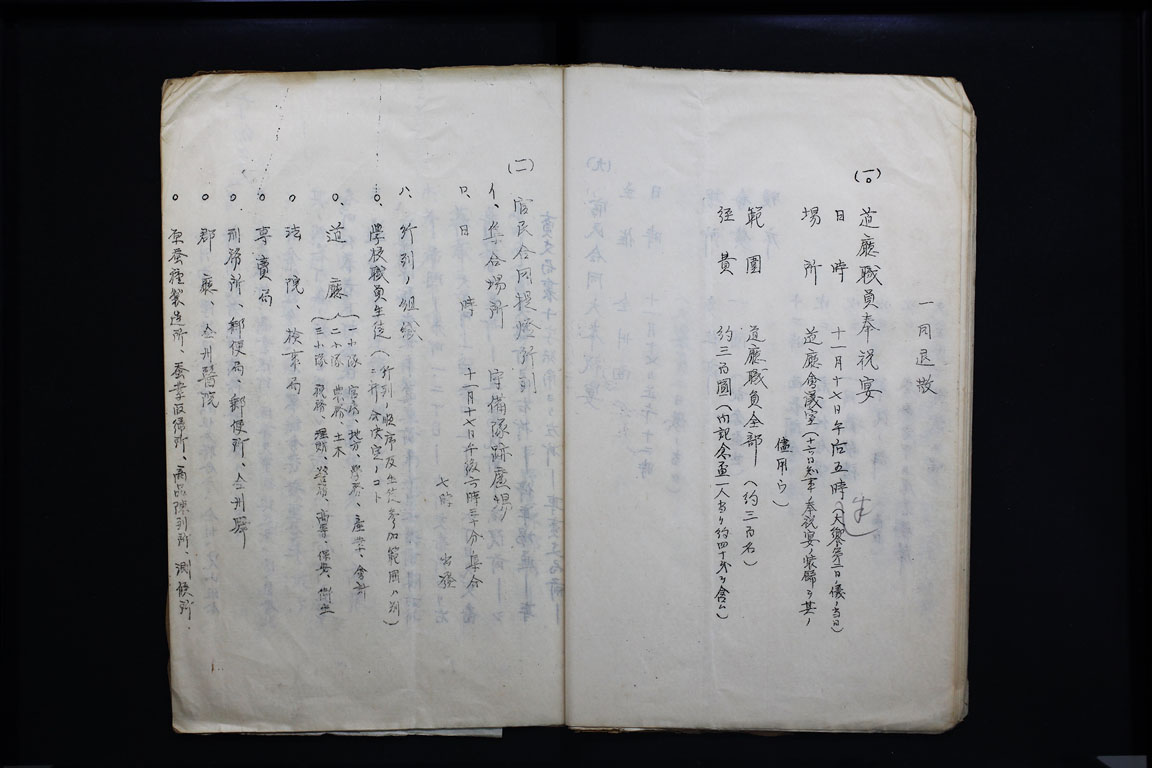 一同退散
(一〇) 道廳職員奉祝宴
日時 十一月十七日午后五時(大饗第二日ノ儀ノ当日)
場所 道廳會議室(十六日知事ノ奉祝宴ノ装飾ヲ其ノ
儘用ウ)
範圍 道廳職員全部(約三百名)
経費 約三百圓(内記念盃一人当リ約四十戔ヲ含ム)
(一一) 官民合同提燈行列
イ、集合場所 守備隊跡廣場
ロ、日時 十一月十七日午後六時三十分集合
七時 出發
ハ、行列ノ組織
〇、學校職員生徒(行列ノ順序及生徒参加範囲ハ別
ニ打合決定ノコト)
〇、道廳 (一小隊 官房、地方、學務、産業、會計
二小隊 農務、土木
三小隊 税務、理財、警務、高等、保安、衛生
〇 法院、検事局
〇 専賣局
〇、刑務所、郵便局、郵便所、全州驛
〇 郡廳、全州醫院
〇 原蚕種製造所、蚕業取締所、商品陳列所、測候所、